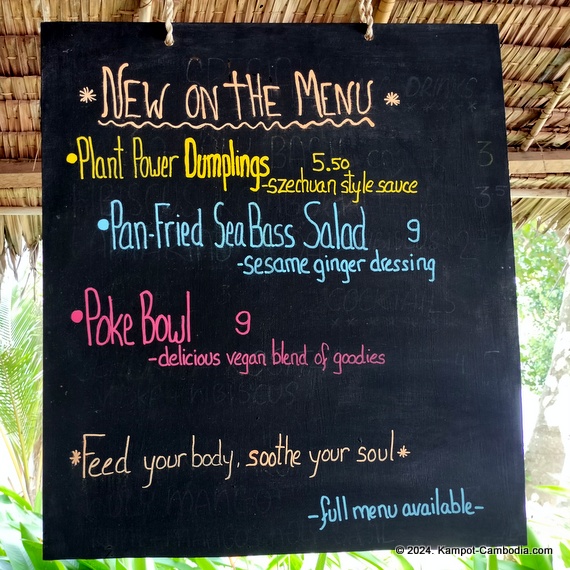 * NEW ON THE MENU *
•Plant Power Dumplings 5.50
-szechuan style sauce
•Pan-Fried Sea Bass Salad 9
-sesame ginger dressing
•Poke Bowl 9
-delicious vegan blend of goodies
*Feed your body, soothe your soul*
-full menu available-
© 2024. Kampot-Cambodia.com